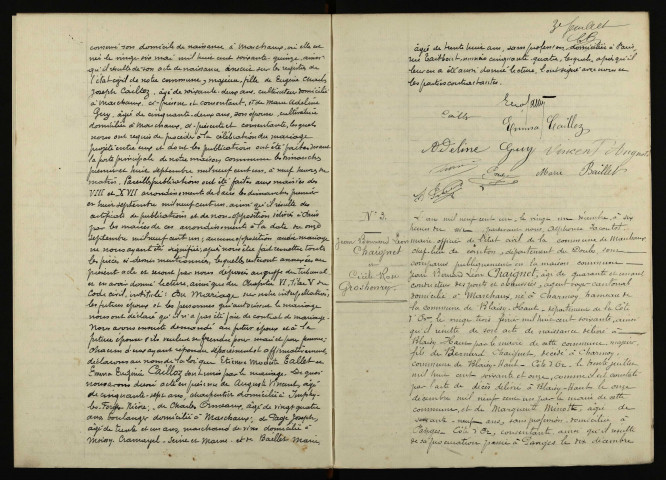 comme son domicile de naissance à Marchaux, où elle est
née le vingt six mai mil huit cent soixante quinze, ainsi
qu'il résulte de son acte de naissance inscrit sur les registres de
l'état civil de notre commune, majeure, fille de Eugène Charles
Joseph Cailloz, âgé de soixante deux ans, cultivateur domicilié
à Marchaux, ci-présent et consentant, et de Marie Adeline
Guy, âgée de cinquante deux ans, son épouse, cultivatrice
domiciliée à Marchaux, ci-présente et consentante, lesquels
nous ont requis de procéder à la célébration du mariage
projeté entre eux et dont les publications ont été faites devant
la porte principale de notre maison commune les dimanches
premier et huit septembre mil neuf cent un, à neuf heures du
matin. Pareilles publications ont été faites aux mairies des
VIII et XVII arrondissements de Paris les dimanches premier
et huit septembre mil neuf cent un, ainsi qu'il résulte des
certificats de publications et de non-opposition délivrés à Paris
par les maires de ces arrondissements à la date du onze
septembre mil neuf cent un; aucune opposition audit mariage
ne nous ayant été signifiée; après nous être fait remettre toutes
les pièces ci-dessus mentionnées, lesquelles resteront annexées au
présent acte et seront par nous déposées au greffe du tribunal
et en avoir donné lecture, ainsi que du Chapitre VI, Titre V du
Code civil, intitulé: Du Mariage, sur notre interpellation,
les futurs époux et les personnes qui autorisent le mariage
nous ont déclaré qu'il n'a pas été fait de contrat de mariage.
Nous avons ensuite demandé au futur époux et à la
future épouse s'ils veulent se prendre pour mari et pour femme;
chacun d'eux ayant répondu séparément et affirmativement,
déclarons au nom de la loi que Etienne Modeste Eallet et
Emma Eugénie Cailloz sont unis par le mariage. De quoi
nous avons dressé acte en présence de Auguste Vincent, âgé
de cinquante-sept ans, charpentier domicilié à Imphy-
les-Forges Nièvre, de Charles âgé de vingt quatre
ans boulanger domicilié à Marchaux, de Joseph,
âgé de trente et un ans, marchand de vins domicilié à
Moissy Cramayel, Seine et Marne et de Baillet Marie
3e feuillet
âgée de trente huit ans, sans profession, domiciliée à Paris,
rue cinquante quatre, lesquels, après qu'il
leur en a été aussi donné lecture, l'ont signé avec nous et
les parties contractantes.
Emma Cailloz
Adeline Guy Vincent Auguste
Marie Baillet
N° 3.
Jean Bernard Léon
Chaignet
et
Cécile
Grosbourg
L'an mil neuf cent un, le vingt un décembre, à dix
heures du par devant nous, Alphonse
maire officier de l'état civil de la commune de Marchaux
chef-lieu de canton, département du Doubs, sont
comparus publiquement en la maison commune
Jean Bernard Léon Chaignet, âgé de quarante et un ans
conducteur des ponts et chaussées, agent voyer cantonal
domicilié à Marchaux, né à Charmoy hameau de
la commune de Blaisy-Haut, département de la Côte
d'Or le vingt trois février mil huit cent soixante, ainsi
qu'il résulte de son acte de naissance délivré à
Blaisy-Haut par le maire de cette commune, majeur
fils de Bernard Chaignet décédé à Charmoy,
commune de Blaisy-Haut, Côte d'Or, le trente juillet
mil huit cent soixante et onze, comme il est constaté
par l'acte de décès délivré à Blaisy-Haut le onze
décembre mil neuf cent un par le maire de cette
commune, et de Marguerite Minot, âgée de
soixante-neuf ans, sans profession, domiciliée à
Côte d'Or, consentante, ainsi qu'il résulte
de sa procuration passée à le dix décembre